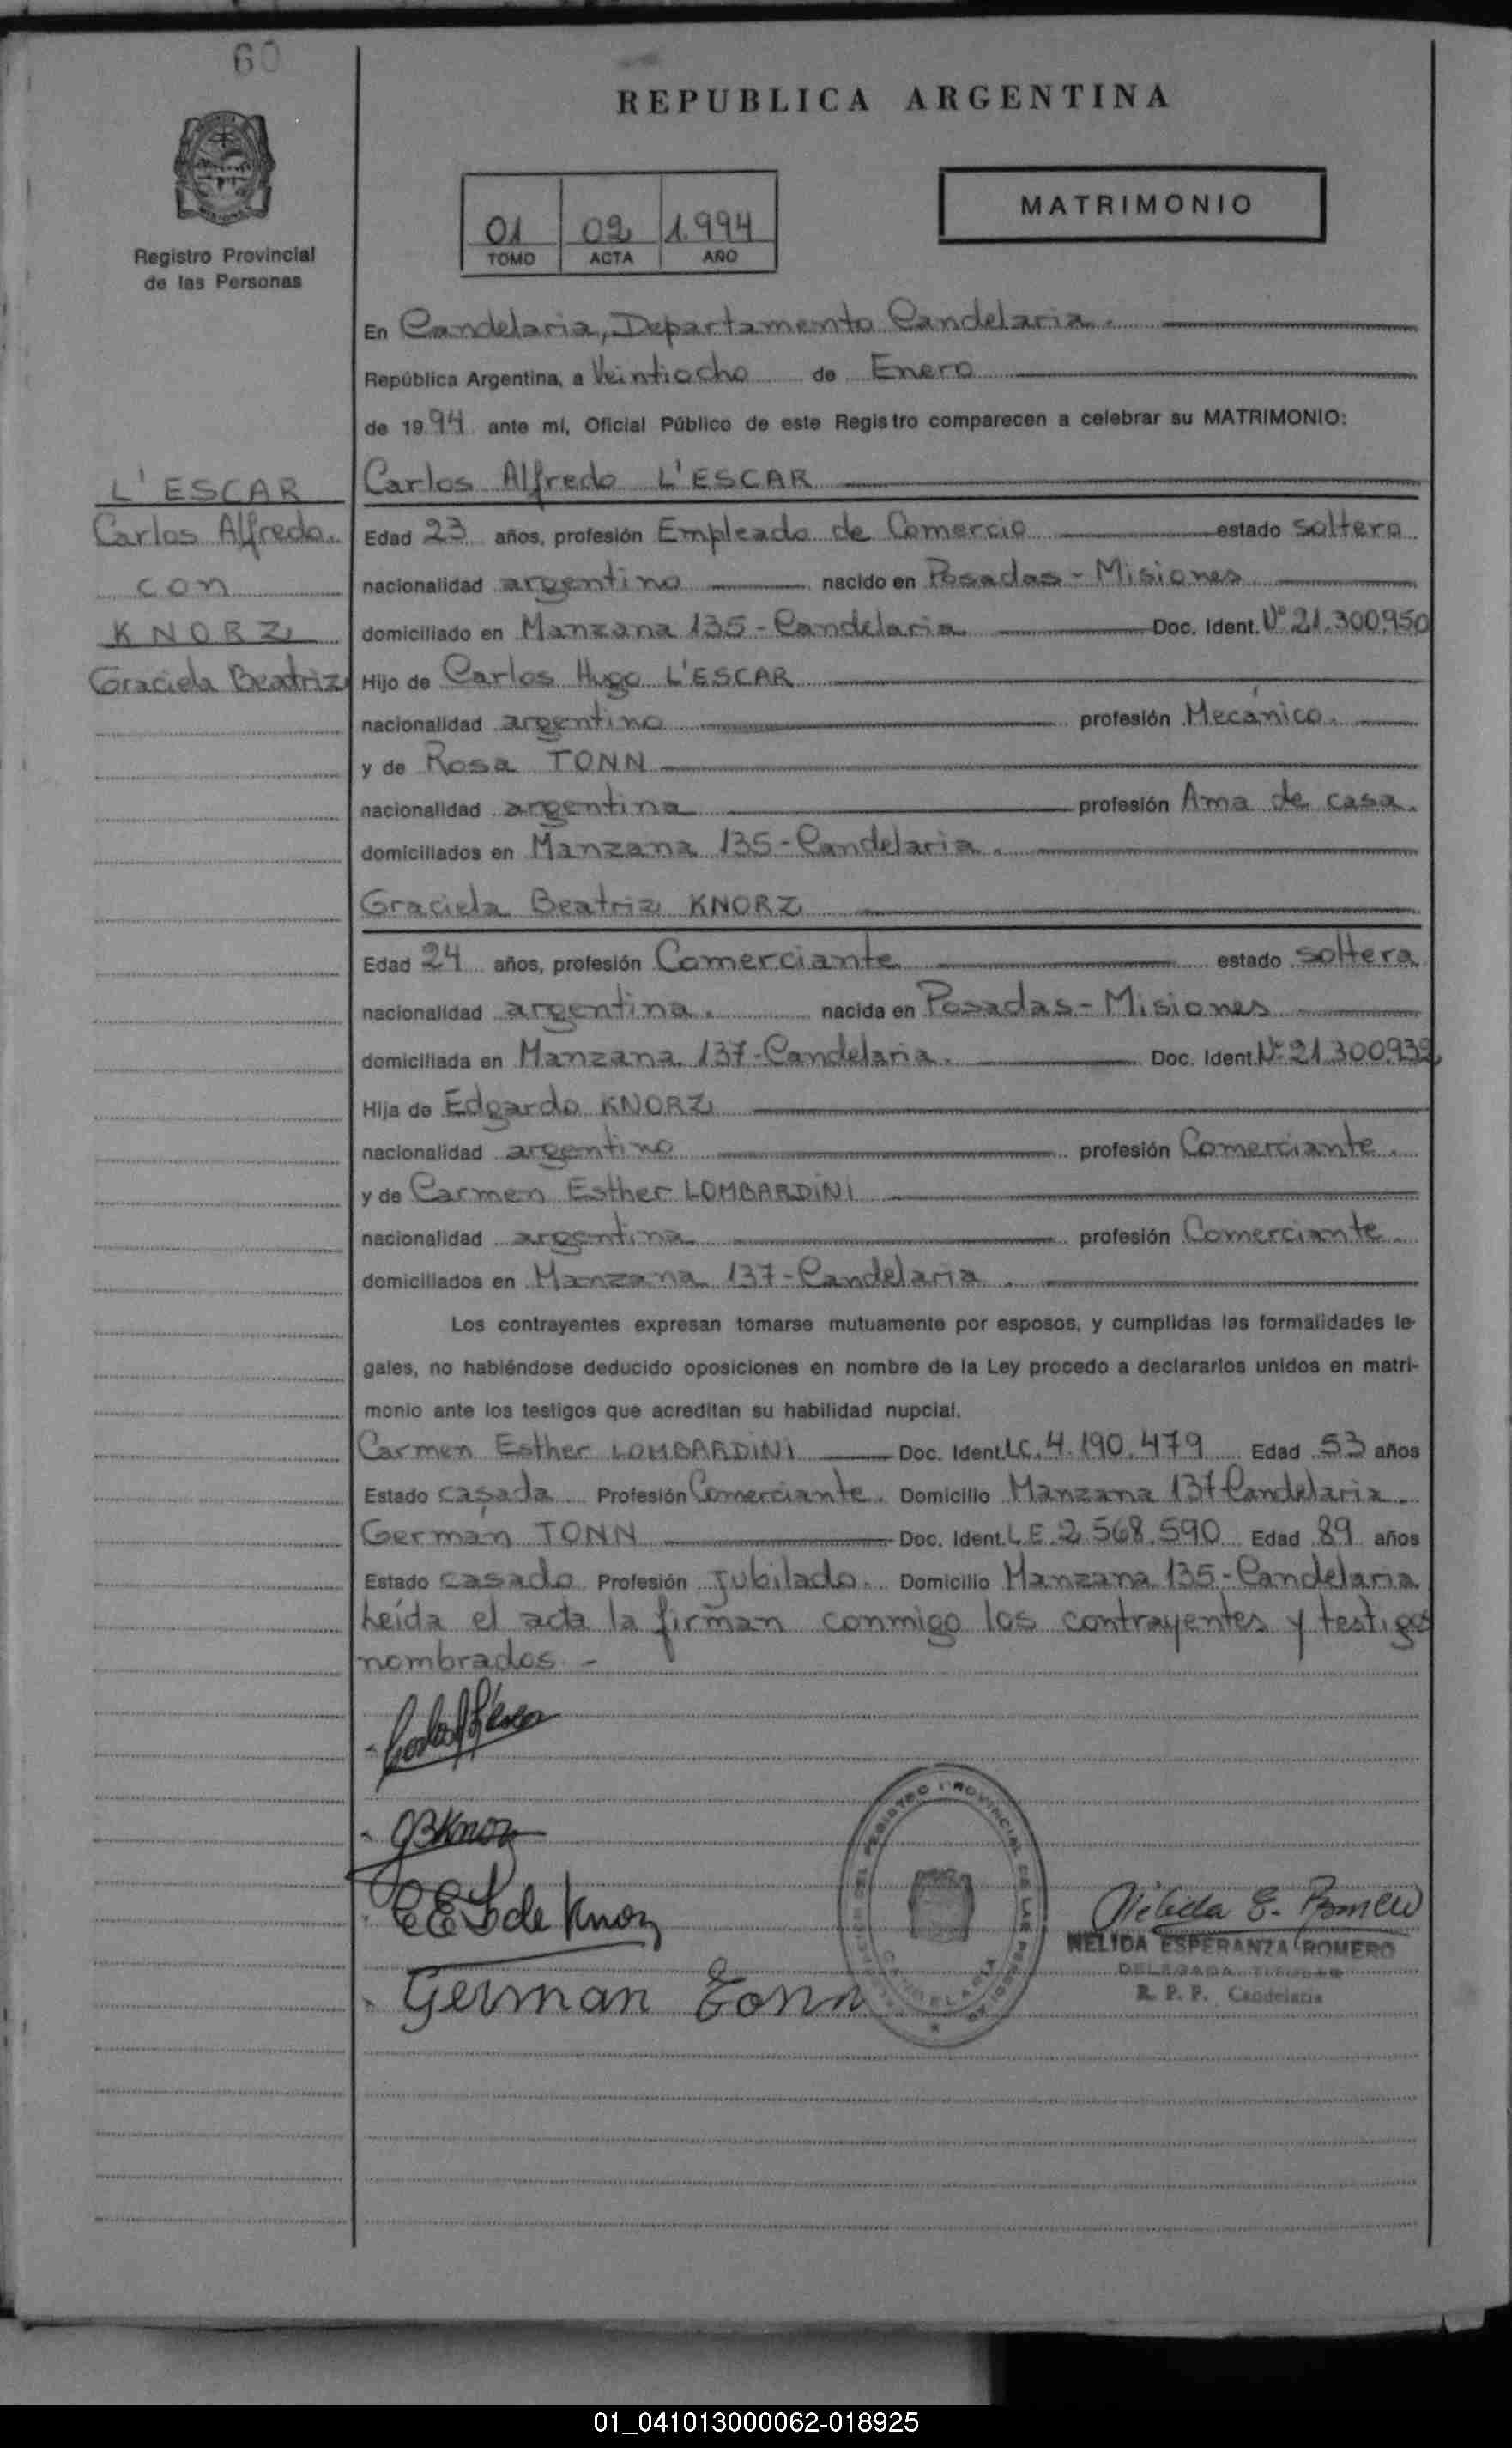 60
REPUBLICA ARGENTINA
Registro Provincial
de las Personas
01 02 1.994
TOMO ACTA AÑO
MATRIMONIO
En Candelaria, Departamento Candelaria.
República Argentina, a Veintiocho de Enero
de 1994 ante mí, Oficial Público de este Registro comparecen a celebrar su MATRIMONIO:
L'ESCAR
Carlos Alfredo.
con
KNORZ
Graciela Beatriz
Carlos Alfredo L'ESCAR
Edad 23 años, profesión Empleado de Comercio estado soltero
nacionalidad argentino nacido en Posadas - Misiones
domiciliado en Manzana 135 - Candelaria Doc. Ident. Nº 21.300.950
Hijo de Carlos Hugo L'ESCAR
nacionalidad argentino profesión Mecánico.
y de Rosa TONN
nacionalidad argentina profesión Ama de casa.
domiciliados en Manzana 135 - Candelaria.
Graciela Beatriz KNORZ
Edad 24 años, profesión Comerciante estado soltera
nacionalidad argentina. nacida en Posadas - Misiones
domiciliada en Manzana 137 - Candelaria. Doc. Ident. Nº 21.300.932
Hija de Edgardo KNORZ
nacionalidad argentino profesión Comerciante.
y de Carmen Esther LOMBARDINI
nacionalidad argentina profesión Comerciante.
domiciliados en Manzana 137 - Candelaria.
Los contrayentes expresan tomarse mutuamente por esposos, y cumplidas las formalidades le-
gales, no habiéndose deducido oposiciones en nombre de la Ley procedo a declararlos unidos en matri-
monio ante los testigos que acreditan su habilidad nupcial.
Carmen Esther LOMBARDINI Doc. Ident. L.C. 4.190.479 Edad 53 años
Estado casada Profesión Comerciante. Domicilio Manzana 137 Candelaria.
Germán TONN Doc. Ident. L.E. 2.568.590 Edad 89 años
Estado casado Profesión Jubilado. Domicilio Manzana 135 - Candelaria
Leída el acta la firman conmigo los contrayentes y testigos
nombrados. -
GBKnorz
CEL de Knorz
German Tonn
REGISTRO PROVINCIAL DE LAS PERSONAS
CANDELARIA
Nélida E. Romero
NELIDA ESPERANZA ROMERO
DELEGADA TITULAR
R. P. P. Candelaria
01_041013000062-018925